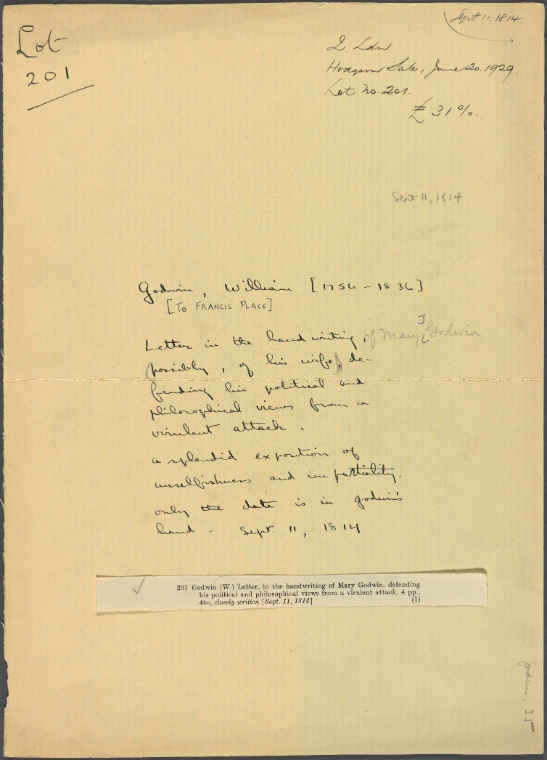 Sept 11. 1814.
Lot
201
Hodgson Sale, June 20. 1929.
Lot no. 201.
£ 31%.
Sept 11, 1814
Godwin, William [1756-1836]
[To FRANCIS PLACE]
Letter in the handwriting, of Mary J Godwin
possibly, of his wife, de-
fending his political and
philosophical views from a
virulent attack.
a splendid exposition of
unselfishness and impartiality.
only the date is in godwin's
hand - Sept. 11, 1814
201 Godwin (W.) Letter, in the handwriting of Mary Godwin, defending
his political and philosophical views from a virulent attack, 4 pp.,
4to, closely written [Sept. 11, 1814] (1)
Godwin, 35